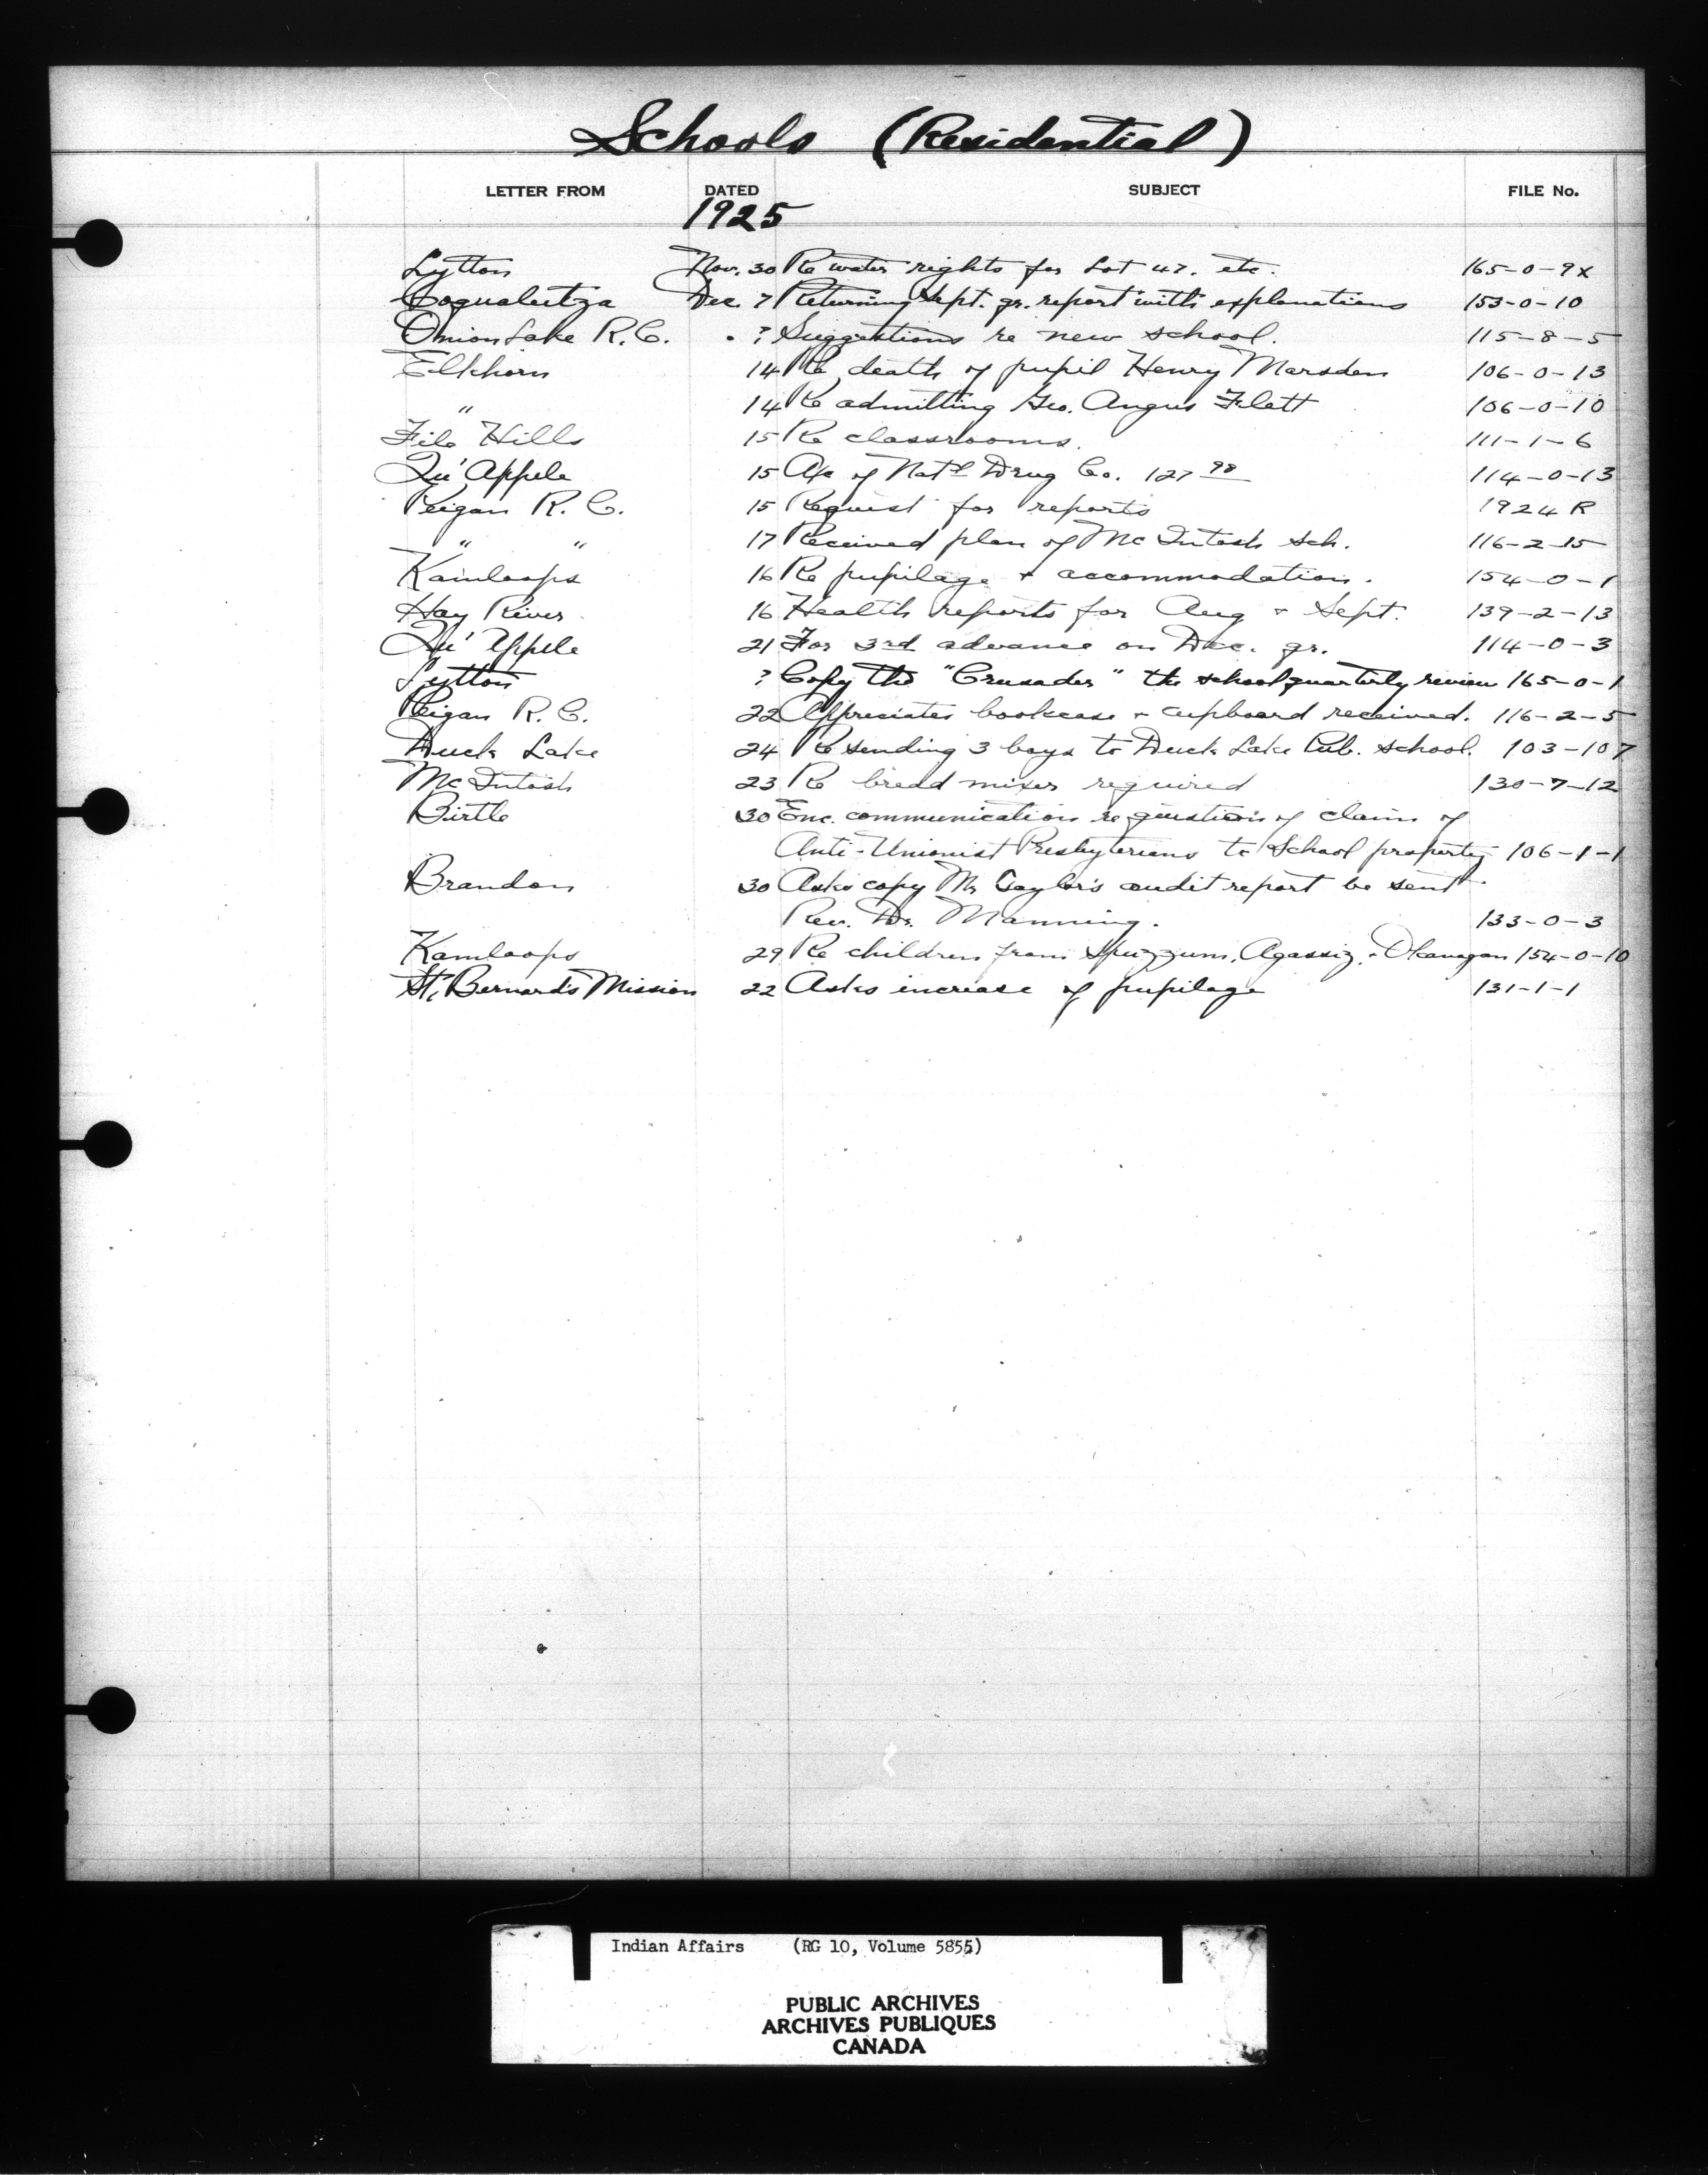 Schools (Residential)
LETTER FROM DATED SUBJECT FILE No.
1925
Lytton Nov. 30 Re water rights for Lot 47. etc. 165-0-9x
Coqualeetza Dec. 7 Returning Sept. qr. report with explanations 153-0-10
Onion Lake R.C. ? Suggestions re new school. 115-8-5
Elkhorn 14 Re death of pupil Henry Marsden 106-0-13
" 14 Re admitting Geo. Angus Flett 106-0-10
File Hills 15 Re classrooms. 111-1-6
Qu'Appele 15 A/c of Nat'l Drug Co. 127 98 114-0-13
Peigan R. C. 15 Request for reports 1924 R
" " 17 Received plan of McIntosh Sch. 116-2-15
Kamloops 16 Re pupilage + accommodation. 154-0-1
Hay River 16 Health reports for Aug + Sept. 139-2-13
Qu'Appele 21 For 3rd advance on Dec. qr. 114-0-3
Lytton ? Copy the "Crusader" the school quarterly review 165-0-1
Peigan R. C. 22 Appreciates bookcase + cupboard received. 116-2-5
Duck Lake 24 Re sending 3 boys to Duck Lake Pub. school. 103-107
McIntosh 23 Re bread mixer required 130-7-12
Birtle 30 Enc. communication re question of claim of
Anti-Unionist Presbyterians to School property 106-1-1
Brandon 30 Asks copy Mr Taylor's audit report be sent
Rev. Dr. Manning. 133-0-3
Kamloops 29 Re children from Spuzzum, Agassiz, + Okanagan 154-0-10
St. Bernard's Mission 22 Asks increase of pupilage 131-1-1
Indian Affairs (RG 10, Volume 5855)
PUBLIC ARCHIVES
ARCHIVES PUBLIQUES
CANADA